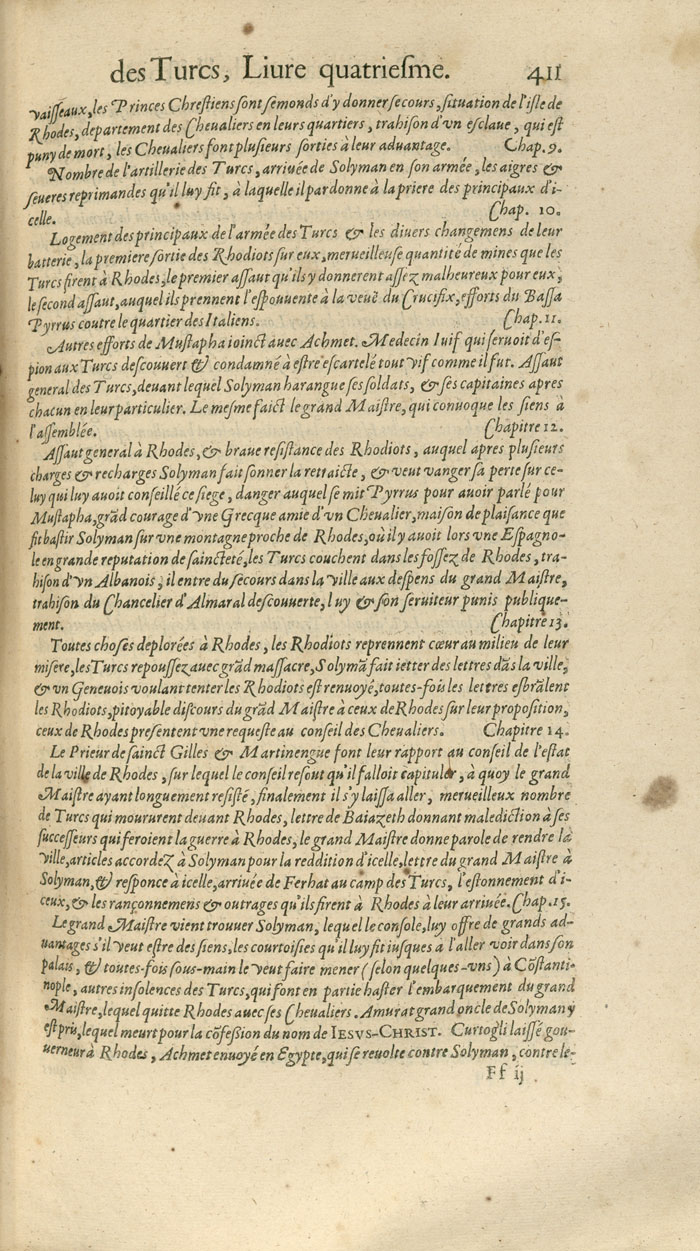 des Turcs, Liure quatriesme. 411
vaisseaux, les Princes Chrestiens sont semonds d'y donner secours, situation de l'isle de
Rhodes, departement des Cheualiers en leurs quartiers, trahison d'vn esclaue, qui est
puny de mort, les Cheualiers font plusieurs sorties à leur aduantage. Chap. 9.
Nombre de l'artillerie des Turcs, arriuée de Solyman en son armée, les aigres &
seueres reprimandes qu'il luy fit, à laquelle il pardonne à la priere des principaux d'i-
celle. Chap. 10.
Logement des principaux de l'armée des Turcs & les diuers changemens de leur
batterie, la premiere sortie des Rhodiots sur eux, merueilleuse quantité de mines que les
Turcs firent à Rhodes, le premier assaut qu'ils y donnerent assez malheureux pour eux,
le second assaut, auquel ils prennent l'espouuente à la veuë du Crucifix, efforts du Bassa
Pyrrus coutre le quartier des Italiens. Chap. 11.
Autres efforts de Mustapha ioinct auec Achmet. Medecin Iuif qui seruoit d'es-
pion aux Turcs descouuert & condamné à estre escartelé tout vif comme il fut. Assaut
general des Turcs, deuant lequel Solyman harangue ses soldats, & ses capitaines apres
chacun en leur particulier. Le mesme faict le grand Maistre, qui conuoque les siens à
l'assemblée. Chapitre 12.
Assaut general à Rhodes, & braue resistance des Rhodiots, auquel apres plusieurs
charges & recharges Solyman fait sonner la retraicte, & veut vanger sa perte sur ce-
luy qui luy auoit conseillé ce siege, danger auquel se mit Pyrrus pour auoir parlé pour
Mustapha, grãd courage d'vne Grecque amie d'vn Cheualier, maison de plaisance que
fit bastir Solyman sur vne montagne proche de Rhodes, où il y auoit lors vne Espagno-
le en grande reputation de saincteté, les Turcs couchent dans les fossez de Rhodes, tra-
hison d'vn Albanois, il entre du secours dans la ville aux despens du grand Maistre,
trahison du Chancelier d'Almaral descouuerte, luy & son seruiteur punis publique-
ment. Chapitre 13.
Toutes choses deplorées à Rhodes, les Rhodiots reprennent cœur au milieu de leur
misere, les Turcs repoussez auec grãd massacre, Solymã fait ietter des lettres dãs la ville,
& vn Geneuois voulant tenter les Rhodiots est renuoyé, toutes-fois les lettres esbrãlent
les Rhodiots, pitoyable discours du grãd Maistre à ceux de Rhodes sur leur proposition,
ceux de Rhodes presentent vne requeste au conseil des Cheualiers. Chapitre 14.
Le Prieur de sainct Gilles & Martinengue font leur rapport au conseil de l'estat
de la ville de Rhodes, sur lequel le conseil resout qu'il falloit capituler, à quoy le grand
Maistre ayant longuement resisté, finalement il s'y laissa aller, merueilleux nombre
de Turcs qui moururent deuant Rhodes, lettre de Baiazeth donnant malediction à ses
successeurs qui feroient la guerre à Rhodes, le grand Maistre donne parole de rendre la
ville, articles accordez à Solyman pour la reddition d'icelle, lettre du grand Maistre à
Solyman, & responce à icelle, arriuée de Ferhat au camp des Turcs, l'estonnement d'i-
ceux, & les rançonnemens & outrages qu'ils firent à Rhodes à leur arriuée. Chap. 15.
Le grand Maistre vient trouuer Solyman, lequel le console, luy offre de grands ad-
uantages s'il veut estre des siens, les courtoisies qu'il luy fit iusques à l'aller voir dans son
palais, & toutes-fois sous-main le veut faire mener (selon quelques-vns) à Cõstanti-
nople, autres insolences des Turcs, qui font en partie haster l'embarquement du grand
Maistre, lequel quitte Rhodes auec ses Cheualiers. Amurat grand oncle de Solyman y
est pris, lequel meurt pour la cõfession du nom de IESVS-CHRIST. Curtogli laissé gou-
uerneur à Rhodes, Achmet enuoyé en Egypte, qui se reuolte contre Solyman, contre le-
Ff ij